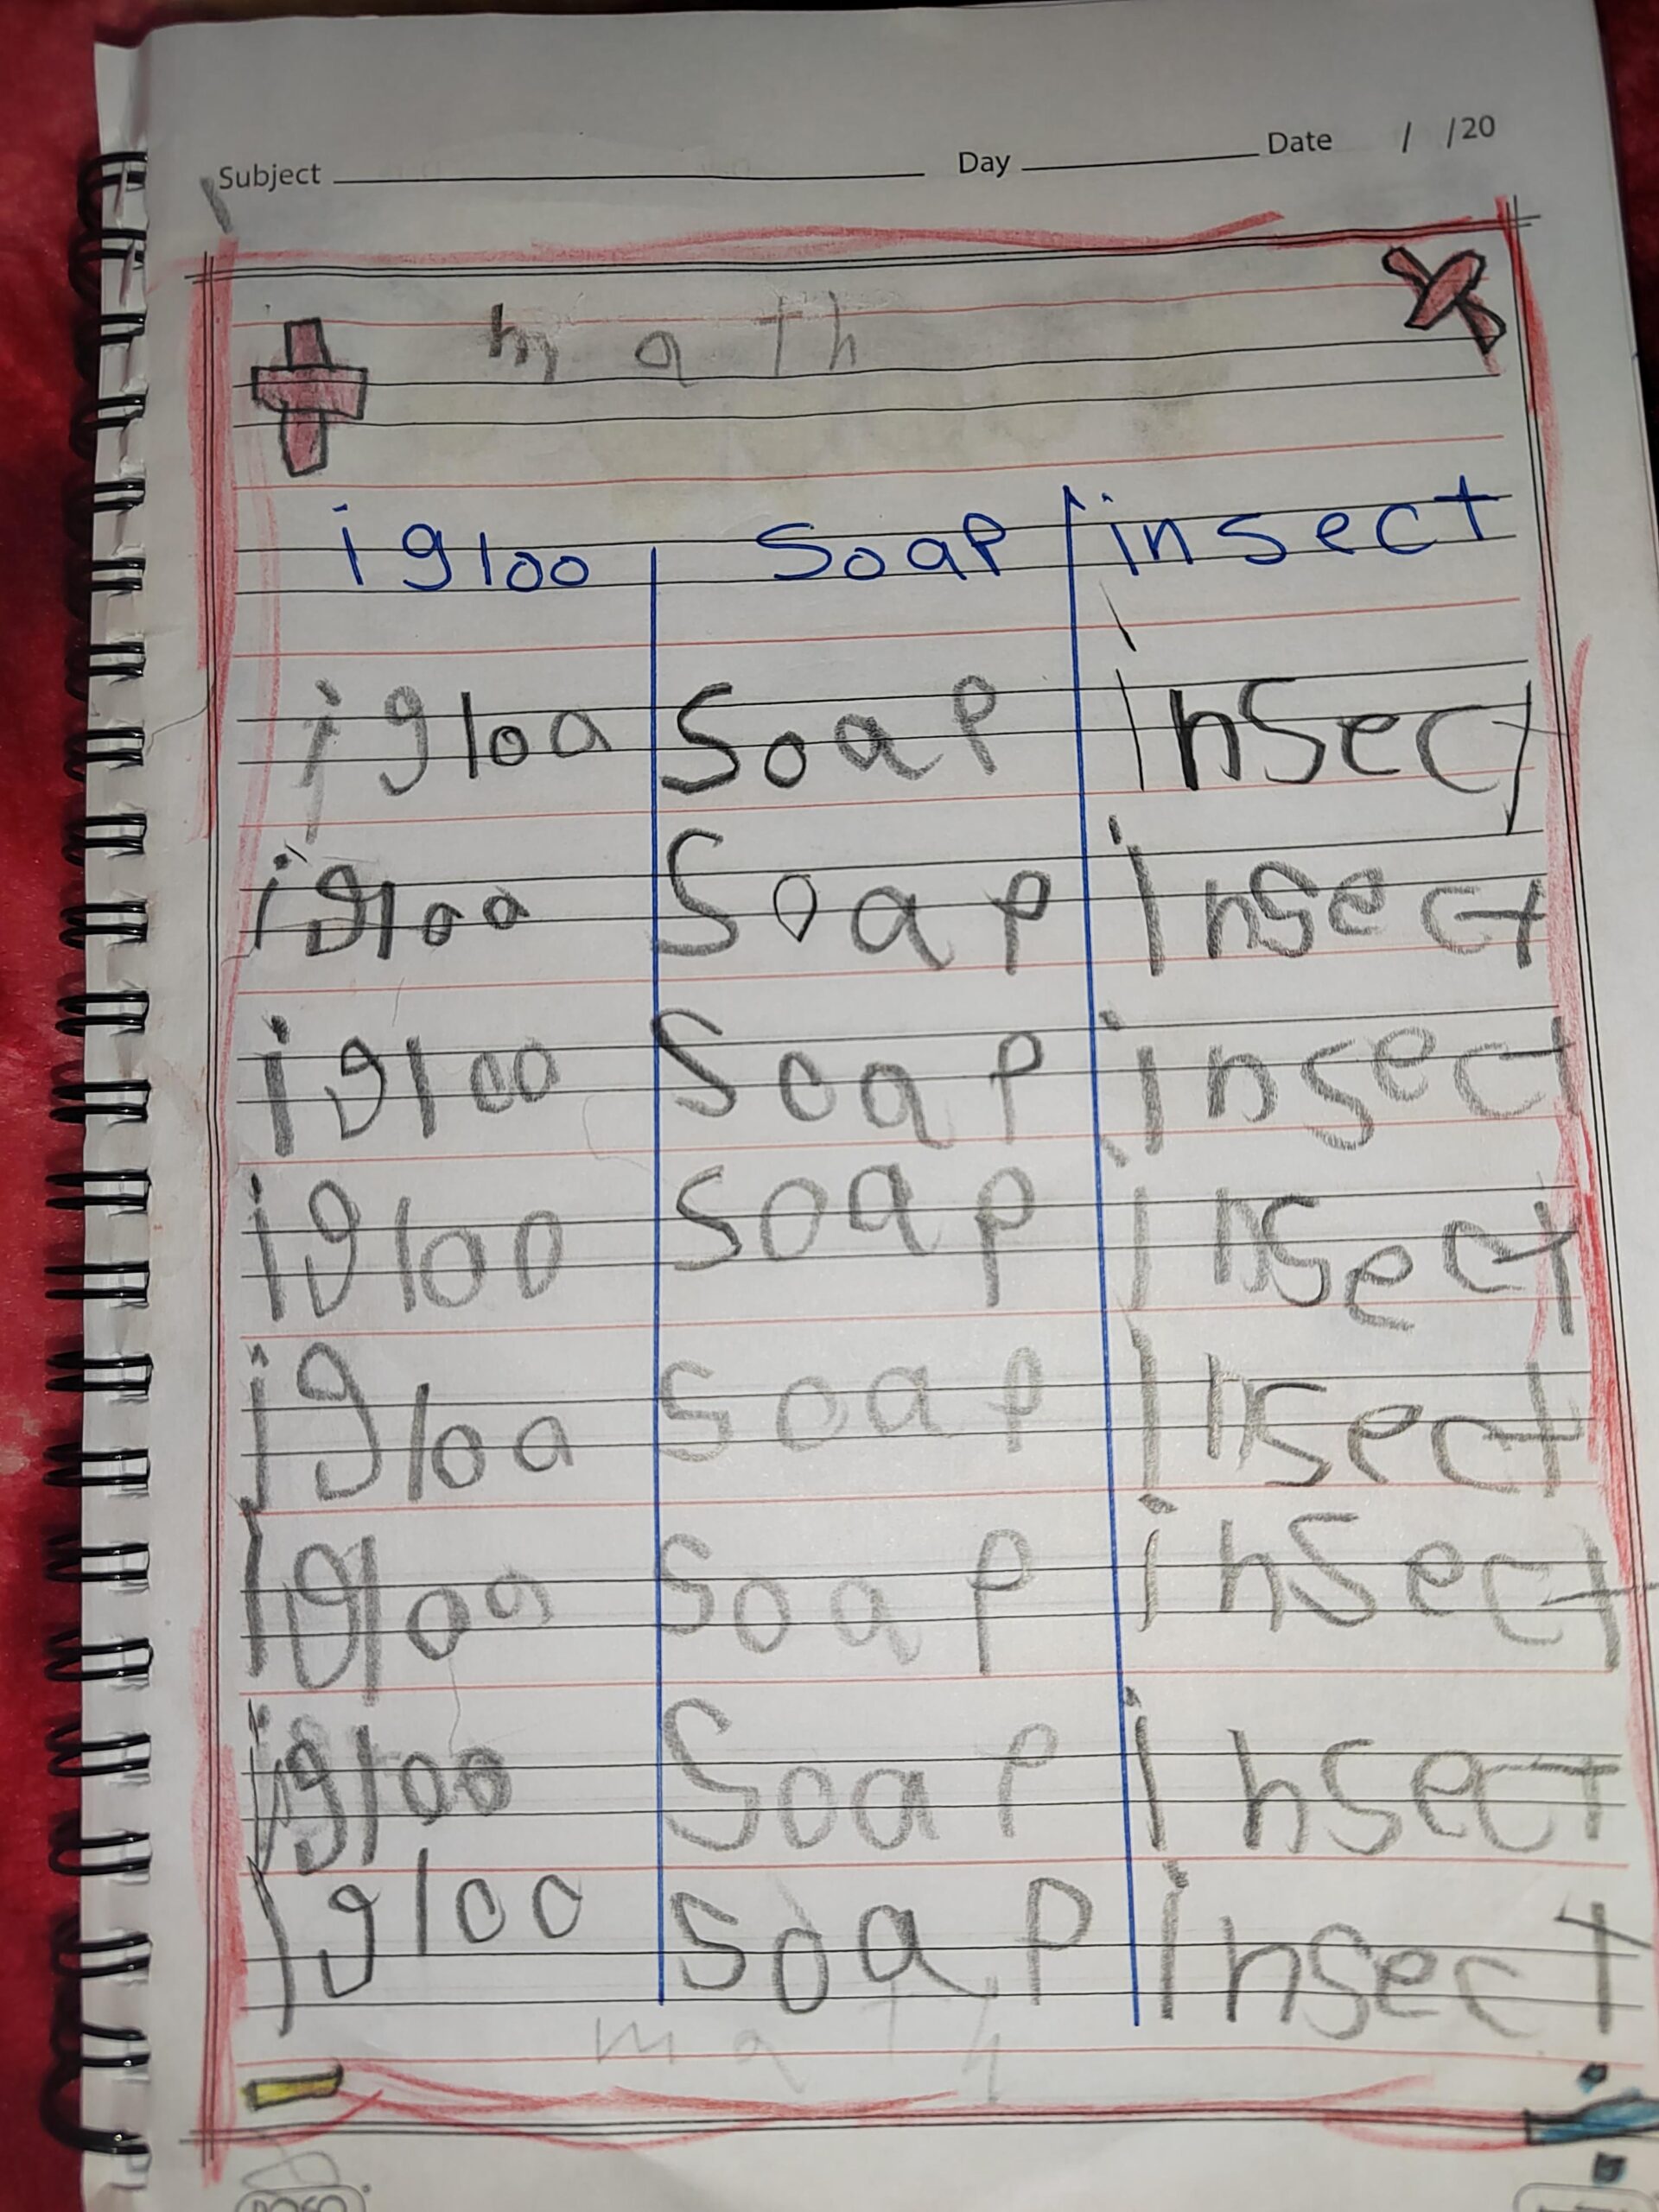 Subject Day Date / /20
math
igloo soap insect
igloa Soap insect
igloo Soap insect
igloo Soap insect
igloo soap insect
igloa soap insect
igloo soap insect
igloo Soap insect
igloo soap insect
math